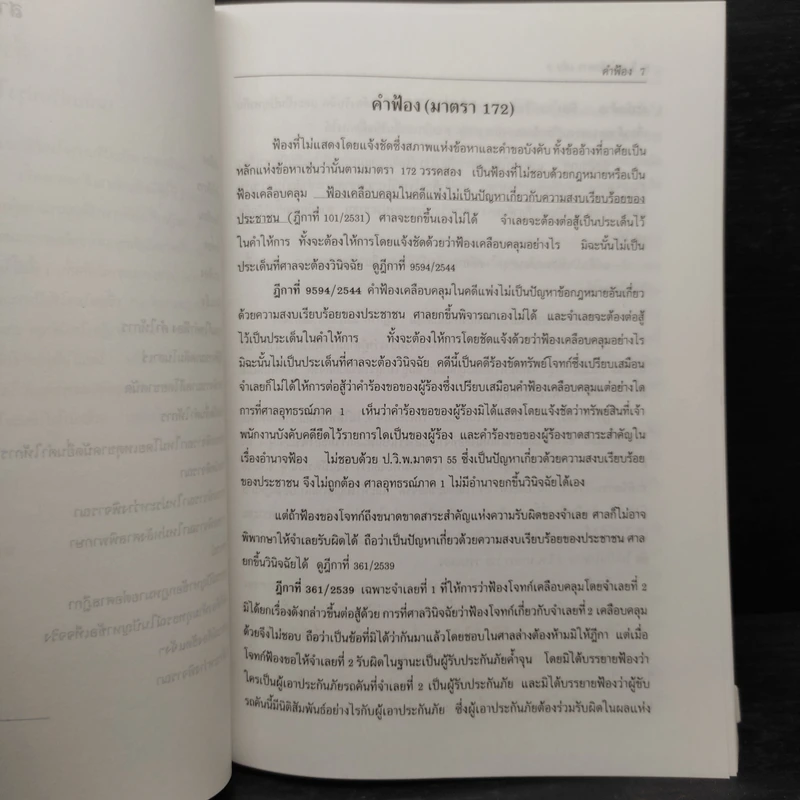 คำฟ้อง 7
คำฟ้อง (มาตรา 172)
ฟ้องที่ไม่แสดงโดยแจ้งชัดซึ่งสภาพแห่งข้อหาและคำขอบังคับ ทั้งข้ออ้างที่อาศัยเป็น
หลักแห่งข้อหาเช่นว่านั้นตามมาตรา 172 วรรคสอง เป็นฟ้องที่ไม่ชอบด้วยกฎหมายหรือเป็น
ฟ้องเคลือบคลุม ฟ้องเคลือบคลุมในคดีแพ่งไม่เป็นปัญหาเกี่ยวกับความสงบเรียบร้อยของ
ประชาชน (ฎีกาที่ 101/2531) ศาลจะยกขึ้นเองไม่ได้ จำเลยจะต้องต่อสู้เป็นประเด็นไว้
ในคำให้การ ทั้งจะต้องให้การโดยแจ้งชัดด้วยว่าฟ้องเคลือบคลุมอย่างไร มิฉะนั้นไม่เป็น
ประเด็นที่ศาลจะต้องวินิจฉัย ดูฎีกาที่ 9594/2544
ฎีกาที่ 9594/2544 คำฟ้องเคลือบคลุมในคดีแพ่งไม่เป็นปัญหาข้อกฎหมายอันเกี่ยว
ด้วยความสงบเรียบร้อยของประชาชน ศาลยกขึ้นพิจารณาเองไม่ได้ และจำเลยจะต้องต่อสู้
ไว้เป็นประเด็นในคำให้การ ทั้งจะต้องให้การโดยชัดแจ้งด้วยว่าฟ้องเคลือบคลุมอย่างไร
มิฉะนั้นไม่เป็นประเด็นที่ศาลจะต้องวินิจฉัย คดีนี้เป็นคดีร้องขัดทรัพย์โจทก์ซึ่งเปรียบเสมือน
จำเลยก็ไม่ได้ให้การต่อสู้ว่าคำร้องขอของผู้ร้องซึ่งเปรียบเสมือนคำฟ้องเคลือบคลุมแต่อย่างใด
การที่ศาลอุทธรณ์ภาค 1 เห็นว่าคำร้องขอของผู้ร้องมิได้แสดงโดยแจ้งชัดว่าทรัพย์สินที่เจ้า
พนักงานบังคับคดียึดไว้รายการใดเป็นของผู้ร้อง และคำร้องขอของผู้ร้องขาดสาระสำคัญใน
เรื่องอำนาจฟ้อง ไม่ชอบด้วย ป.วิ.พ.มาตรา 55 ซึ่งเป็นปัญหาเกี่ยวด้วยความสงบเรียบร้อย
ของประชาชน จึงไม่ถูกต้อง ศาลอุทธรณ์ภาค 1 ไม่มีอำนาจยกขึ้นวินิจฉัยได้เอง
แต่ถ้าฟ้องของโจทก์ถึงขนาดขาดสาระสำคัญแห่งความรับผิดของจำเลย ศาลก็ไม่อาจ
พิพากษาให้จำเลยรับผิดได้ ถือว่าเป็นปัญหาเกี่ยวด้วยความสงบเรียบร้อยของประชาชน ศาล
ยกขึ้นวินิจฉัยได้ ดูฎีกาที่ 361/2539
ฎีกาที่ 361/2539 เฉพาะจำเลยที่ 1 ที่ให้การว่าฟ้องโจทก์เคลือบคลุมโดยจำเลยที่ 2
มิได้ยกเรื่องดังกล่าวขึ้นต่อสู้ด้วย การที่ศาลวินิจฉัยว่าฟ้องโจทก์เกี่ยวกับจำเลยที่ 2 เคลือบคลุม
ด้วยจึงไม่ชอบ ถือว่าเป็นข้อที่มิได้ว่ากันมาแล้วโดยชอบในศาลล่างต้องห้ามมิให้ฎีกา แต่เมื่อ
โจทก์ฟ้องขอให้จำเลยที่ 2 รับผิดในฐานะเป็นผู้รับประกันภัยค้ำจุน โดยมิได้บรรยายฟ้องว่า
ใครเป็นผู้เอาประกันภัยรถคันที่จำเลยที่ 2 เป็นผู้รับประกันภัย และมิได้บรรยายฟ้องว่าผู้ขับ
รถคันนี้มีนิติสัมพันธ์อย่างไรกับผู้เอาประกันภัย ซึ่งผู้เอาประกันภัยต้องร่วมรับผิดในผลแห่ง